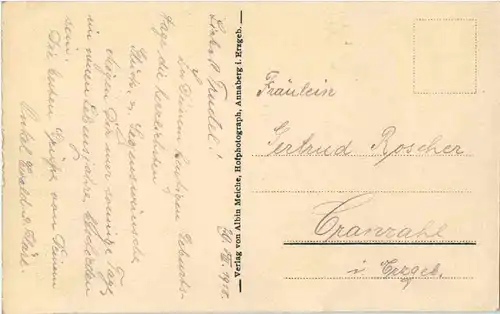 20. VII. 1918.
Liebste Trudel!
Zu Deinem heutigen Geburts-
tage die herzlichsten
Glück- u. Segenswünsche
mögen Dir nur sonnige Tage
im neuen Lebensjahre beschieden
sein.
Die besten Grüße von Deinem
Onkel Ewald u.
Verlag von Albin Meiche, Hofphotograph, Annaberg i. Erzgeb.
Fräulein
Gertrud Roscher
Cranzahl
i. Erzgeb.